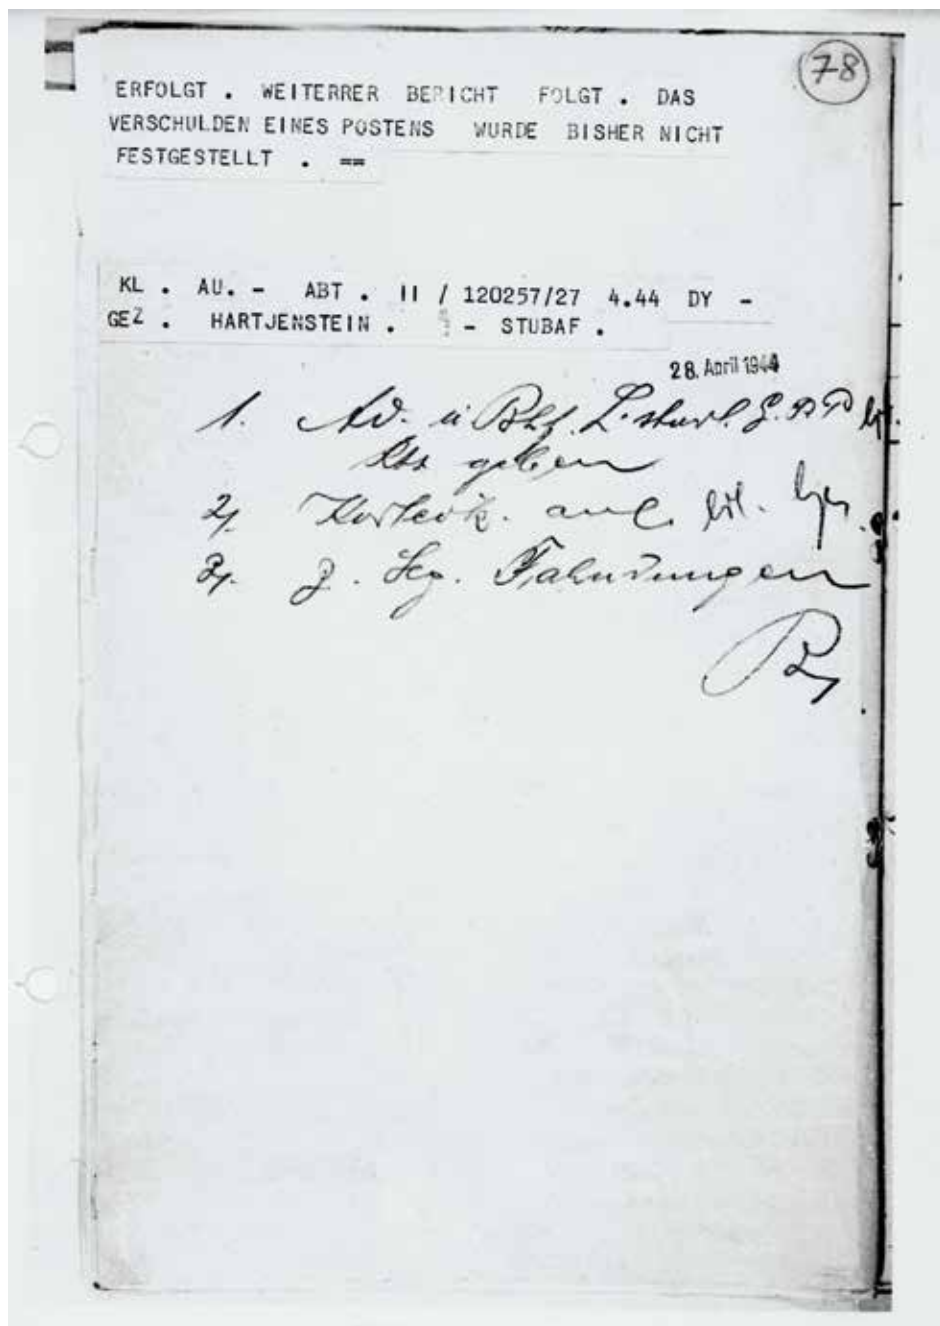 78
ERFOLGT . WEITERRER BERICHT FOLGT . DAS
VERSCHULDEN EINES POSTENS WURDE BISHER NICHT
FESTGESTELLT . ==
KL . AU. - ABT . II / 120257/27 4.44 DY -
GEZ . HARTJENSTEIN . - STUBAF .
28. April 1944
1. 
geben
2.
3. Fahndungen